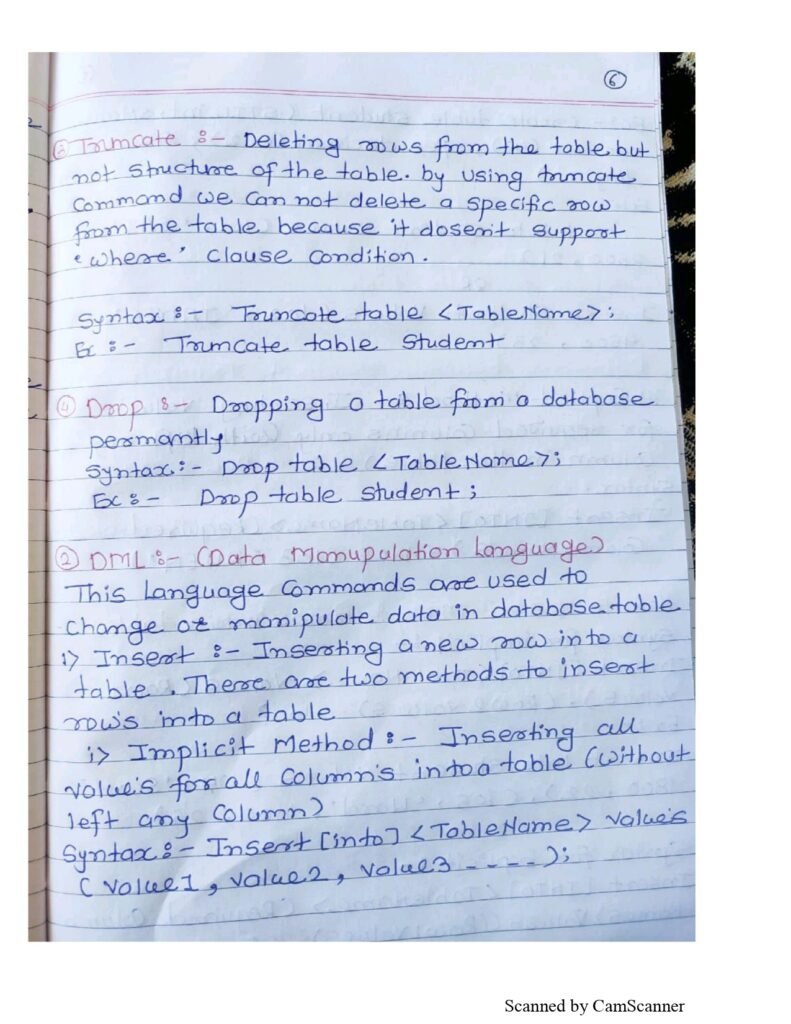 6
③ Truncate :- Deleting rows from the table but
not structure of the table. by using truncate
Command we can not delete a specific row
from the table because it dosen't support
'where' clause condition.
Syntax :- Truncate table <TableName>;
Ex :- Truncate table Student
④ Drop :- Dropping a table from a database
permantly
Syntax :- Drop table <TableName>;
Ex :- Drop table Student ;
② DML :- (Data Manupulation Language)
This Language Commands are used to
Change or manipulate data in database table
1) Insert :- Inserting a new row into a
table . There are two methods to insert
row's into a table
i) Implicit Method :- Inserting all
value's for all Column's into a table (without
left any Column)
Syntax :- Insert [into] <TableName> value's
( value1 , value2 , value3 - - - - );
Scanned by CamScanner